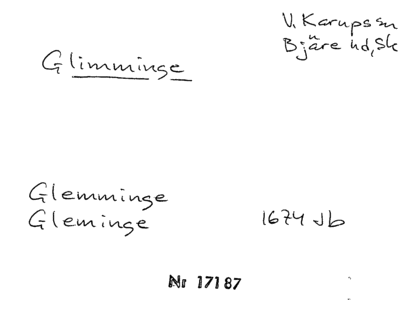 V. Karups sn
Bjäre hd, Sk
Glimminge
Glemminge
Gleminge 1674 Jb
Nr 17187